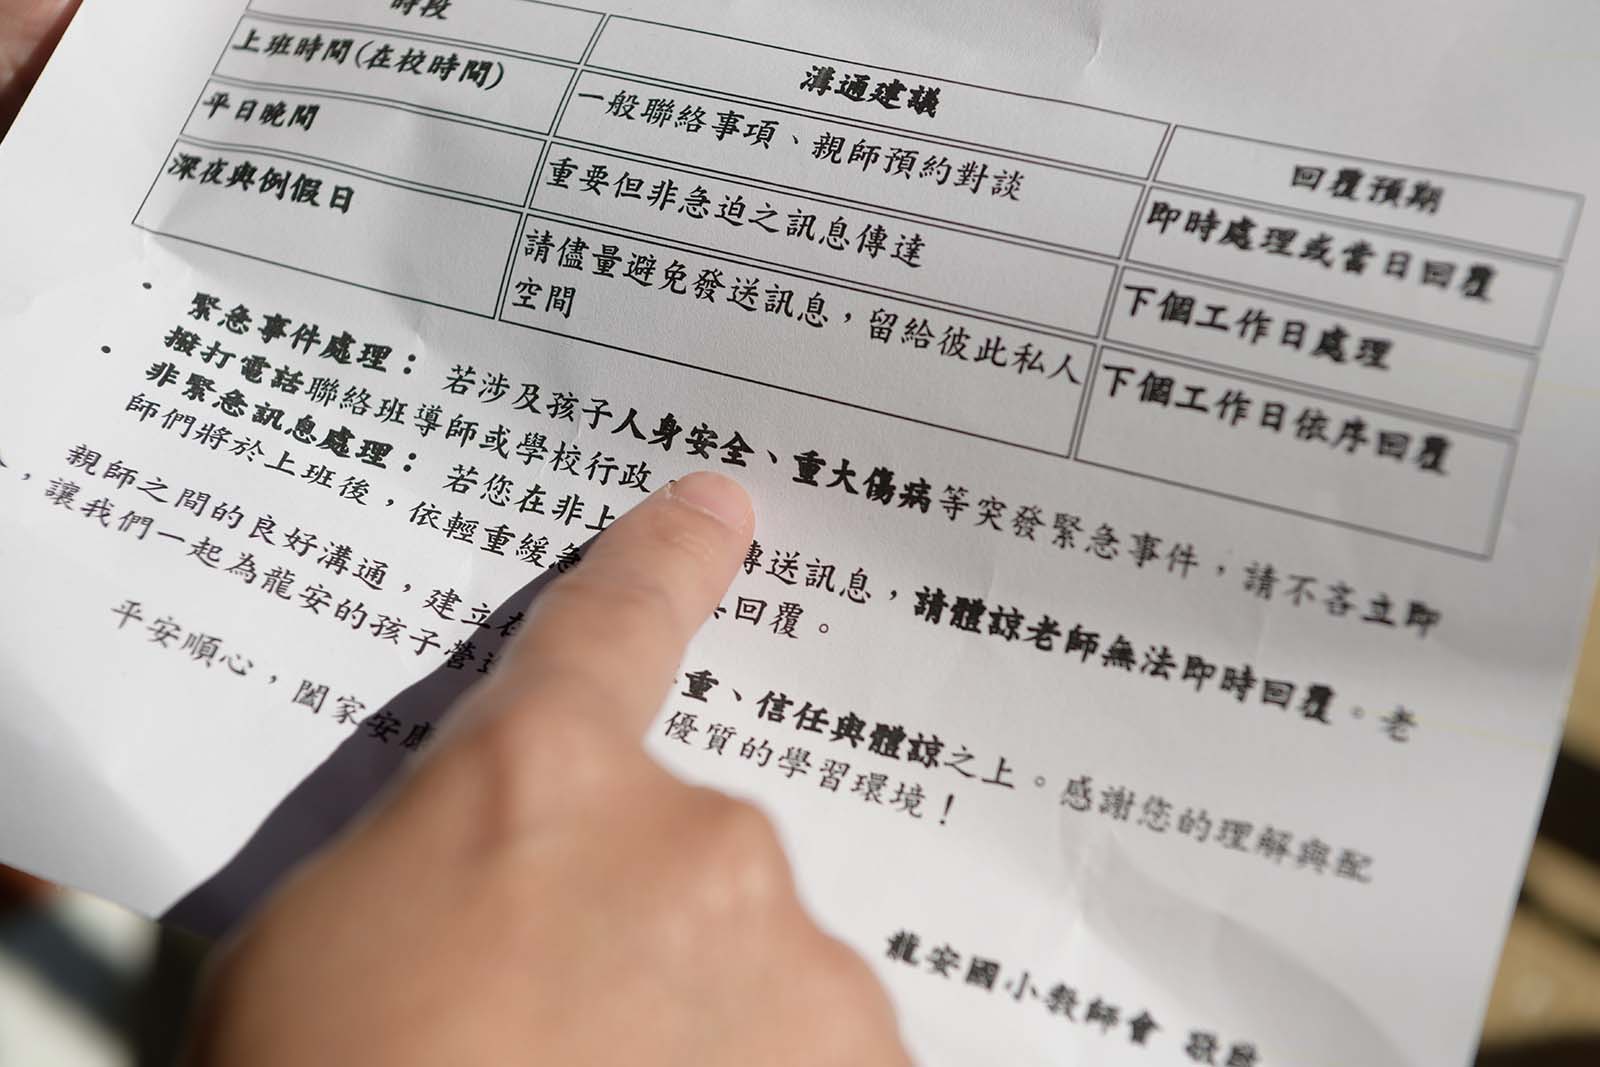 時段 溝通建議 回覆預期
上班時間(在校時間) 一般聯絡事項、親師預約對談 即時處理或當日回覆
平日晚間 重要但非急迫之訊息傳達 下個工作日處理
深夜與例假日 請儘量避免發送訊息，留給彼此私人 下個工作日依序回覆
空間
• 緊急事件處理： 若涉及孩子人身安全、重大傷病等突發緊急事件，請不吝立即
撥打電話聯絡班導師或學校行政。
• 非緊急訊息處理： 若您在非上 傳送訊息，請體諒老師無法即時回覆。老
師們將於上班後，依輕重緩急 回覆。
親師之間的良好溝通，建立在 重、信任與體諒之上。感謝您的理解與配
，讓我們一起為龍安的孩子營造 優質的學習環境！
平安順心，闔家安康
龍安國小教師會 敬啟